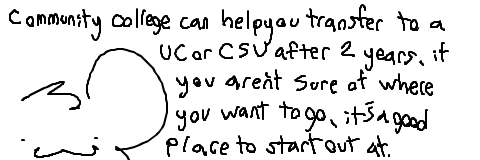 Community college can help you transfer to a
UC or CSU after 2 years, if
you aren't sure at where
you want to go, it's a good
place to start out at.